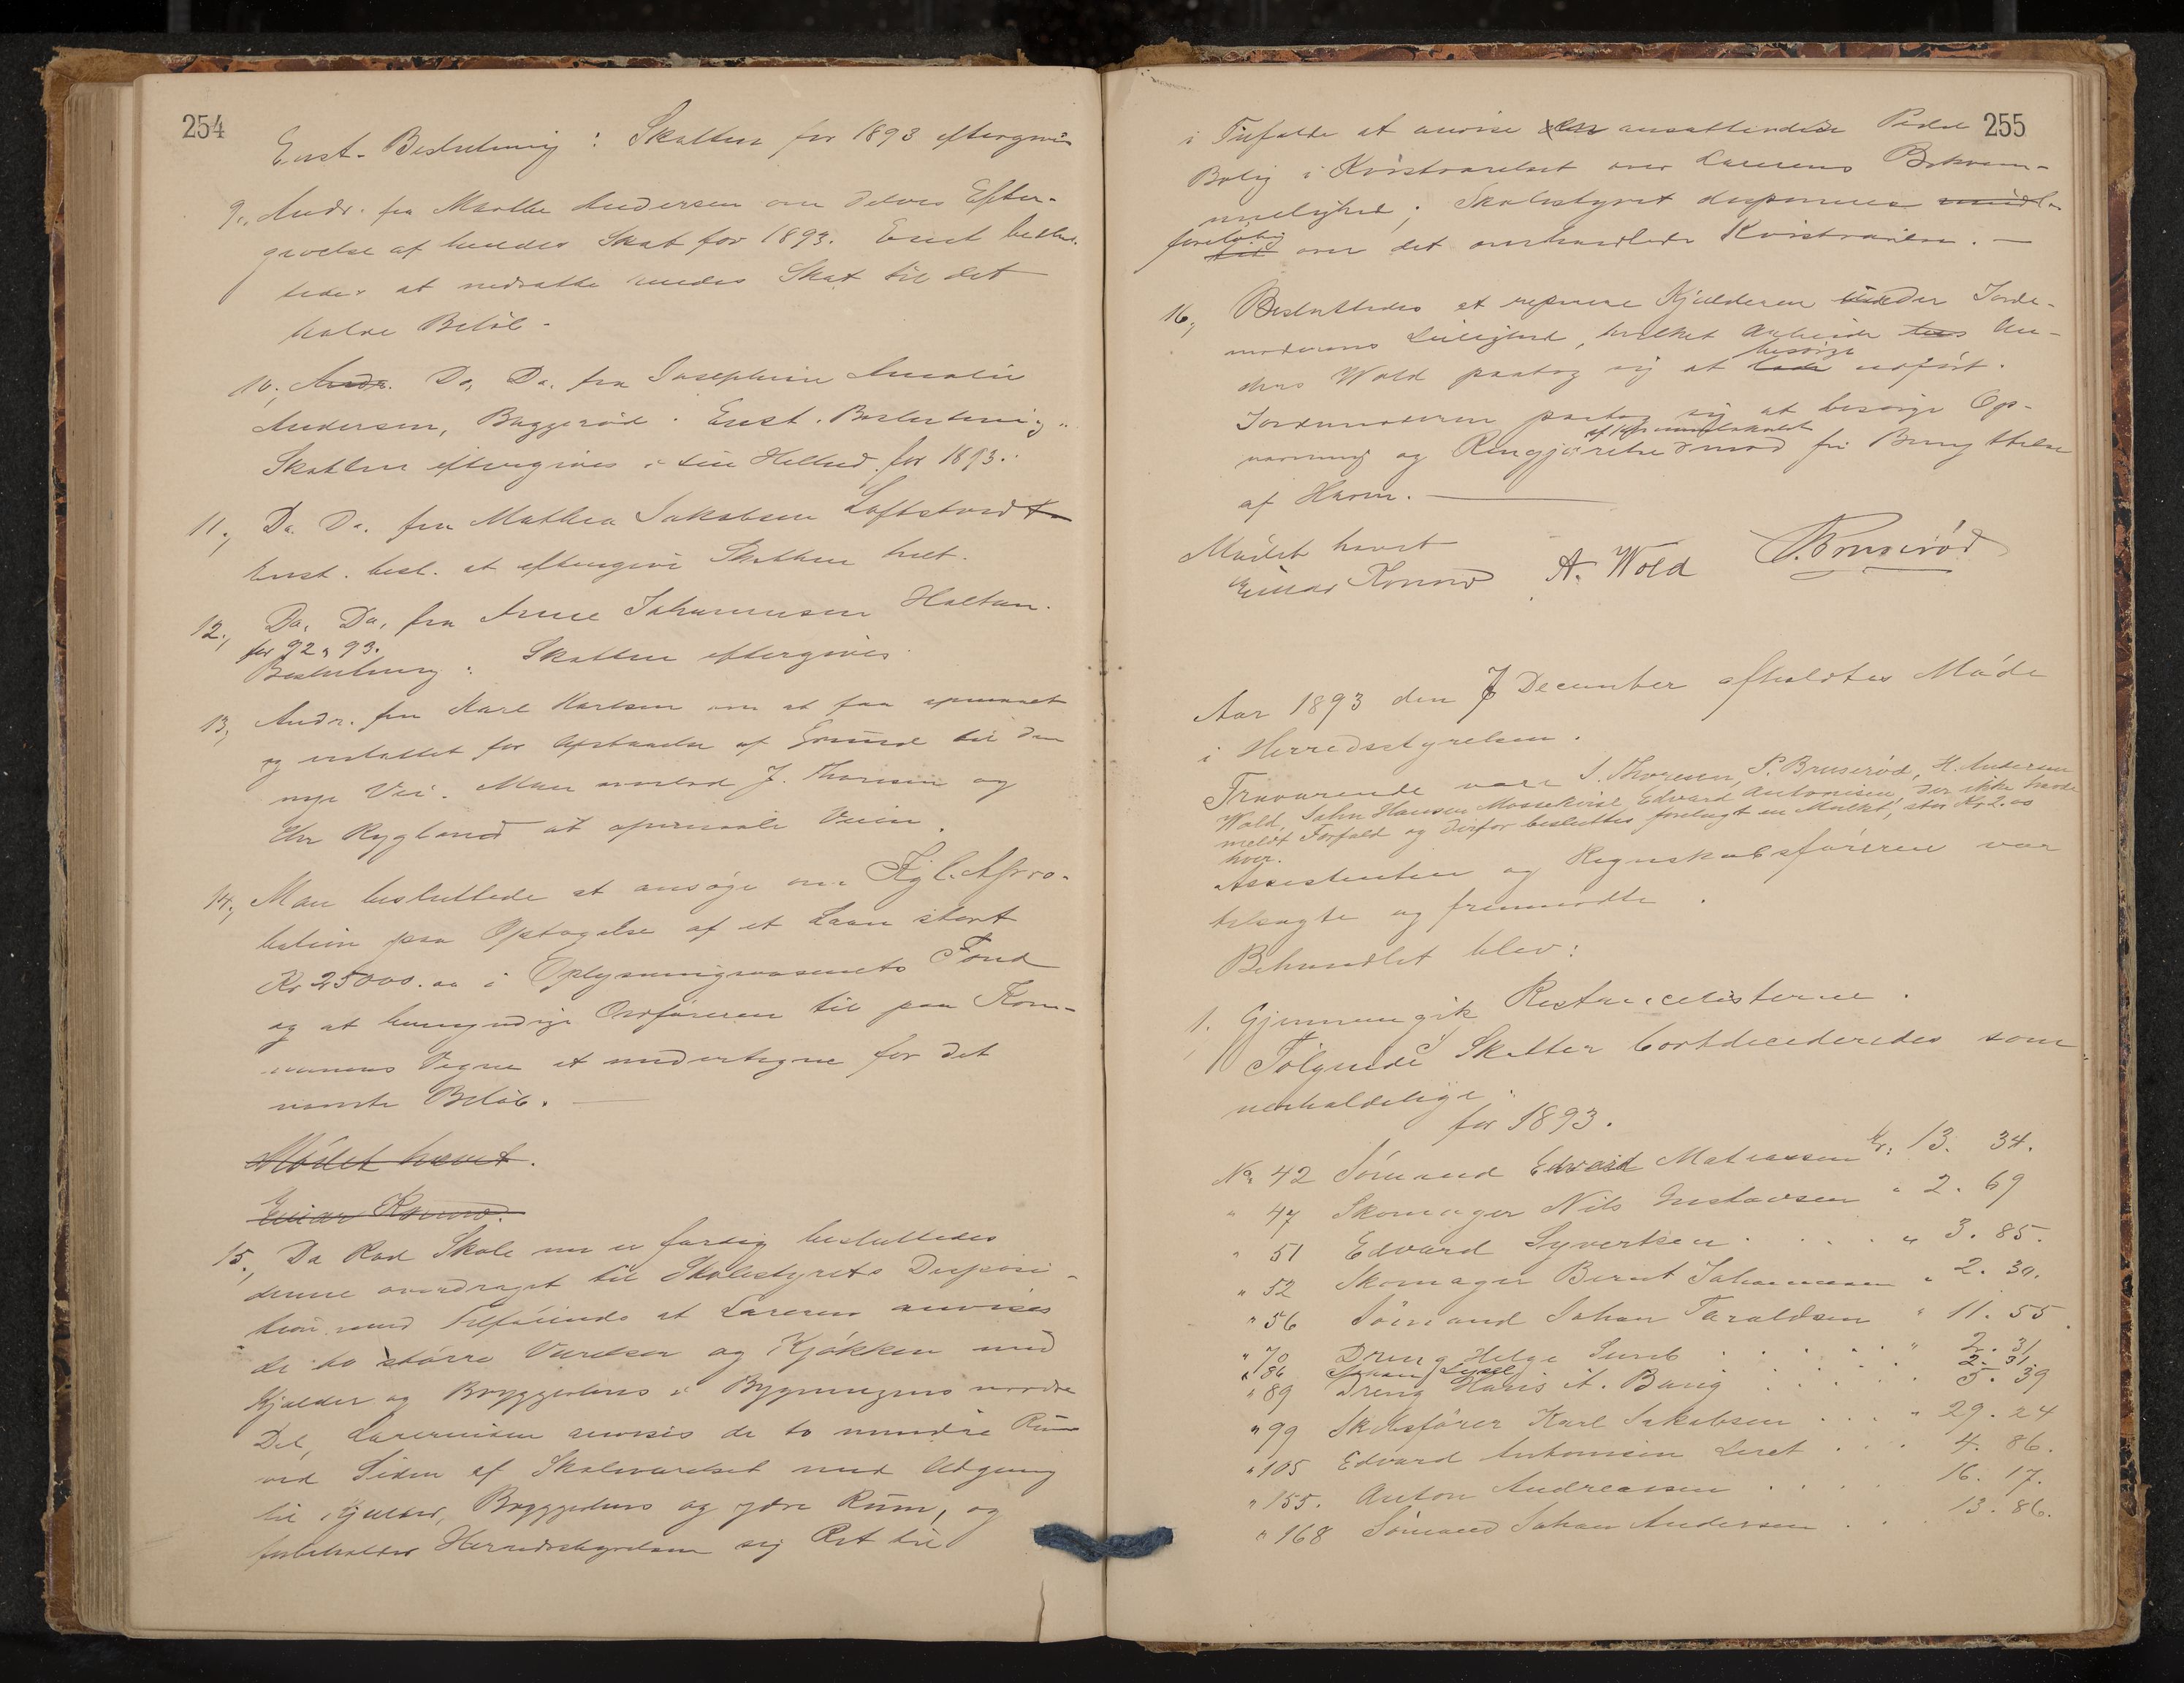 254
Enst. Beslutning: Skatten for 1893 eftergives
9., Andr. fra Marthe Andersen om delvis Efter-
givelse af hendes Skat for 1893. Enst beslut-
tedes at nedsætte hendes Skat til det
halve Beløb.
10., Andr. Do, Do. fra Josephine Amalie
Andersen, Baggerød. Enst. Beslutning:
Skatten eftergives i sin Helhed for 1893.
11., Do. Do. fra Mathea Jakobsen Loftstved
Enst. besl. at eftergive Skatten helt.
12., Do. Do. fra Anne Johannesen Holtan.
for 92 & 93.
Beslutning: Skatten eftergives.
13, Andr. fra Karl Karlsen om at faa opmaalt
og erstattet for Afstaaelse af Grund til den
nye Vei. Man anmod J. Thoresen og
Chr Rygland at opmaale Veien.
14., Man besluttede at ansøge om Kgl. Appro-
bation paa Optagelse af et Laan stort
Kr 25000.00 i Oplysningsvæsenets Fond
og at bemyndige Ordføreren til paa Kom-
munens Vegne at undertegne for det
nævnte Beløb.
Mødet hævet.
Einar Konow.
15., Da Rød Skole nu er færdig besluttedes
denne overdraget til Skolestyrets Disposi-
tion med Tilføiende at Læreren anvises
de to større Værelser og Kjøkken med
Kjælder og Bryggerhus i Bygningens nordre
Del, Lærerinden anvises de to mindre Rum
ved Siden af Skoleværelset med Adgang
til Kjælder, Bryggerhus og ydre Rum, og
forbeholder Herredsstyrelsen sig Ret til
255
i Tilfælde at anvise den ansættendes
Bolig i Kvistværelset over Lærerens Bekvem-
melighed; Skolestyret disponerer
foreløbig over det omhandlede Kvistværelse.
16, Besluttedes at reparere Kjælderen under Jorde-
moderens Leilighed, hvilket Arbeide An-
dreas Wold paatog sig at besørge udført.
Jordemoderen paatog sig at besørge Op-
varming og Rengjørelse af Kommunelokalet mod fri Benyttelse
af Haven.
Mødet hævet
Einar Konow A. Wold P. Bruserød
Aar 1893 den 7 December afholdtes Møde
i Herredsstyrelsen.
Fraværende vare S. Thoresen, P. Bruserød, H. Andersen
Wold, John Hansen Mossekvise, Edvard Antonisen, der ikke havde
meldt Forfald og derfor besluttes forelagt en Mulkt, stor Kr 2.00
hver.
Assistenten og Regnskabsføreren var
tilsagte og fremmødte.
Behandlet blev:
1., Gjennemgik Restancelisterne.
Følgende Skatter bortdecideredes som
uerholdelige:
for 1893.
No 42 Sømand Edvard Mathiassen Kr: 13. 34.
" 47 Skomager Nils Gustavsen " 2. 69
" 51 Edvard Syvertsen . . . . " 3. 85.
" 52 Skomager Bernt Johannesen " 2. 30.
" 56 Sømand Johan Taraldsen " 11. 55
" 70 Dreng Helge Sund . . . . . " 2. 31
" 86 Johan . . . . . 2. 31.
" 89 Dreng Hans A. Bang . . . . . 5. 39
" 99 Skibsfører Karl Jakobsen . . . " 29. 24
" 105 Edvard Antonisen Leret . . . 4. 86.
" 155. Anton Andreassen . . . . . 16. 17.
" 168 Sømand Johan Andersen . . . 13. 86.